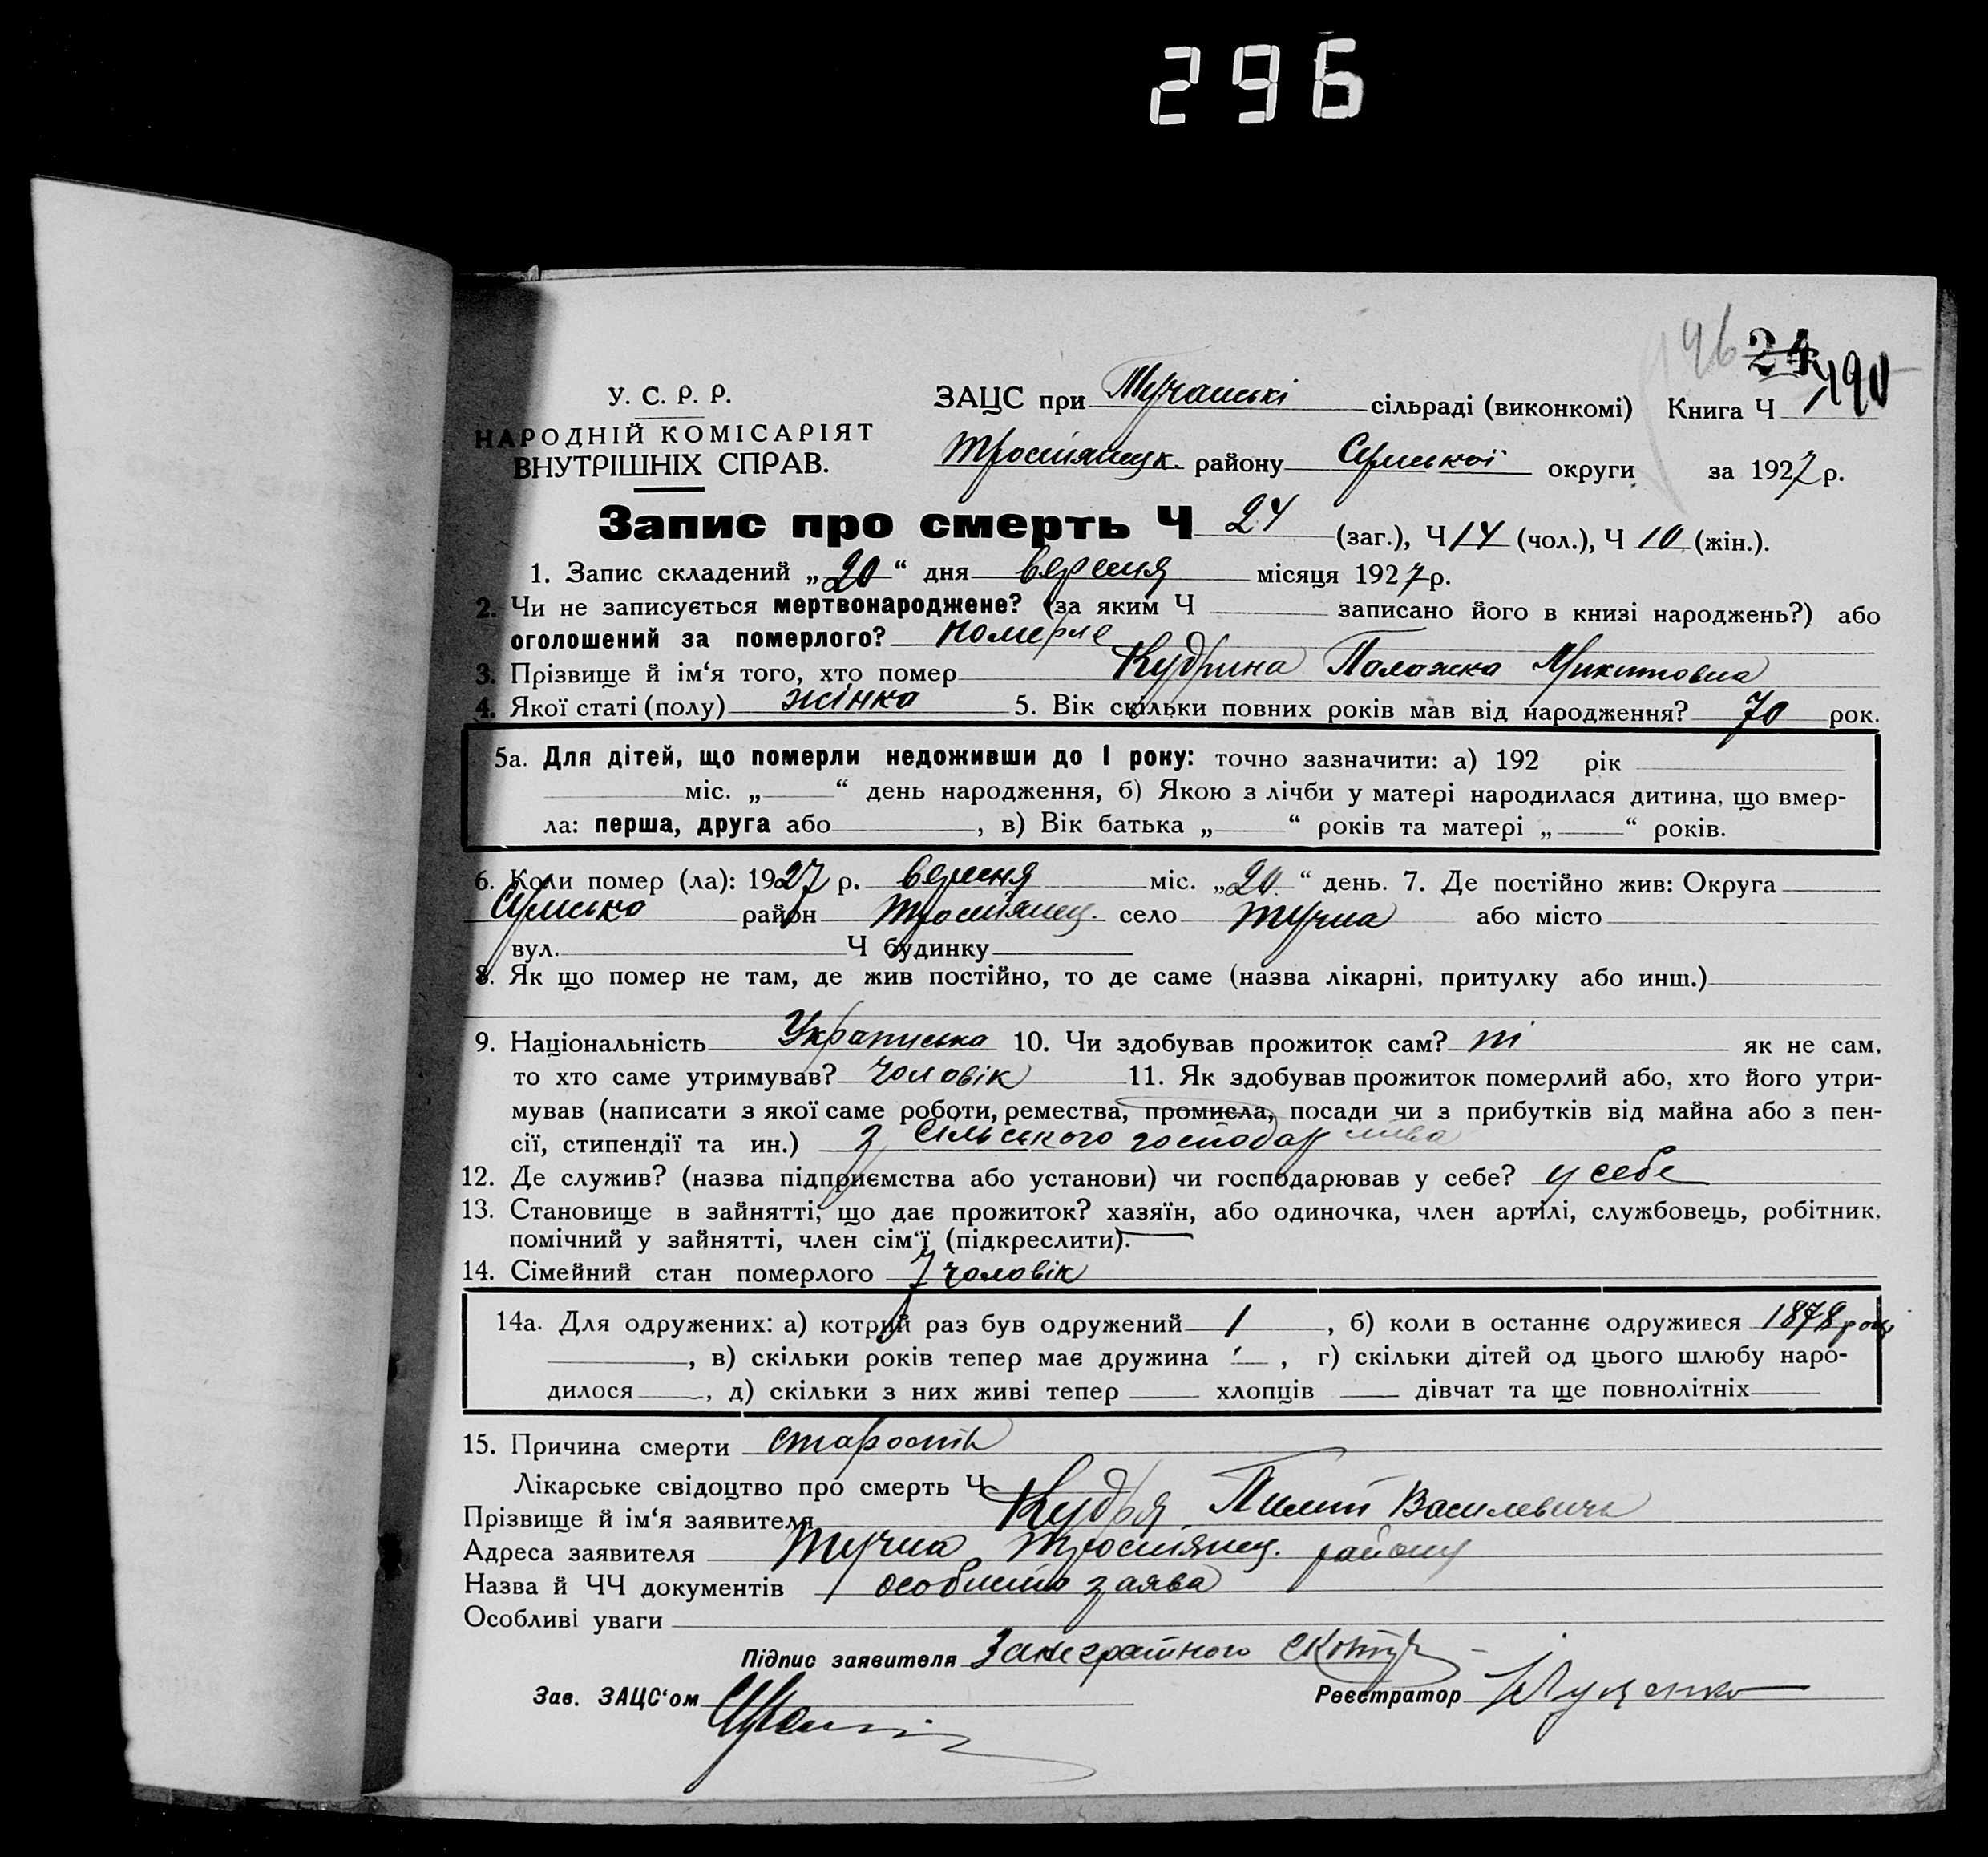 296
146 24 190
У. С. Р. Р.
НАРОДНІЙ КОМІСАРІЯТ
ВНУТРІШНІХ СПРАВ.
ЗАЦС при Тучанські сільраді (виконкомі) Книга Ч
Тростянецк. району Сумської округи за 1927 р.
Запис про смерть Ч 24 (заг.), Ч 14 (чол.), Ч 10 (жін.).
1. Запис складений „20“ дня вересня місяця 1927 р.
2. Чи не записується мертвонароджене? (за яким Ч записано його в книзі народжень?) або
оголошений за померлого? померле
3. Прізвище й ім‘я того, хто помер Кудрина Палажка Микитовна
4. Якої статі (полу) жінка 5. Вік скільки повних років мав від народження? 70 рок.
5а. Для дітей, що померли недоживши до 1 року: точно зазначити: а) 192 рік
міс. „ “ день народження, б) Якою з лічби у матері народилася дитина, що вмер-
ла: перша, друга або , в) Вік батька „ “ років та матері „ “ років.
6. Коли помер (ла): 1927 р. вересня міс. „20“ день. 7. Де постійно жив: Округа
Сумська район Тростянец. село Тучна або місто
вул. Ч будинку
8. Як що помер не там, де жив постійно, то де саме (назва лікарні, притулку або инш.)
9. Національність Украінська 10. Чи здобував прожиток сам? ні як не сам,
то хто саме утримував? чоловік 11. Як здобував прожиток померлий або, хто його утри-
мував (написати з якої саме роботи, ремества, промисла, посади чи з прибутків від майна або з пен-
сії, стипендії та ин.) з сільського господарства
12. Де служив? (назва підприємства або установи) чи господарював у себе? у себе
13. Становище в зайнятті, що дає прожиток? хазяїн, або одиночка, член артілі, службовець, робітник,
помічний у зайнятті, член сім‘ї (підкреслити).
14. Сімейний стан померлого чоловік
14а. Для одружених: а) котрий раз був одружений 1 , б) коли в останнє одружився 1878 році
, в) скільки років тепер має дружина , г) скільки дітей од цього шлюбу наро-
дилося , д) скільки з них живі тепер хлопців дівчат та ще повнолітніх
15. Причина смерти старость
Лікарське свідоцтво про смерть Ч
Прізвище й ім‘я заявителя Кудря Пилип Василевичь
Адреса заявителя Тучна Тростянец. району
Назва й ЧЧ документів особиста заява
Особливі уваги
Підпис заявителя За неграмотного
Зав. ЗАЦС‘ом Реєстратор Луценко